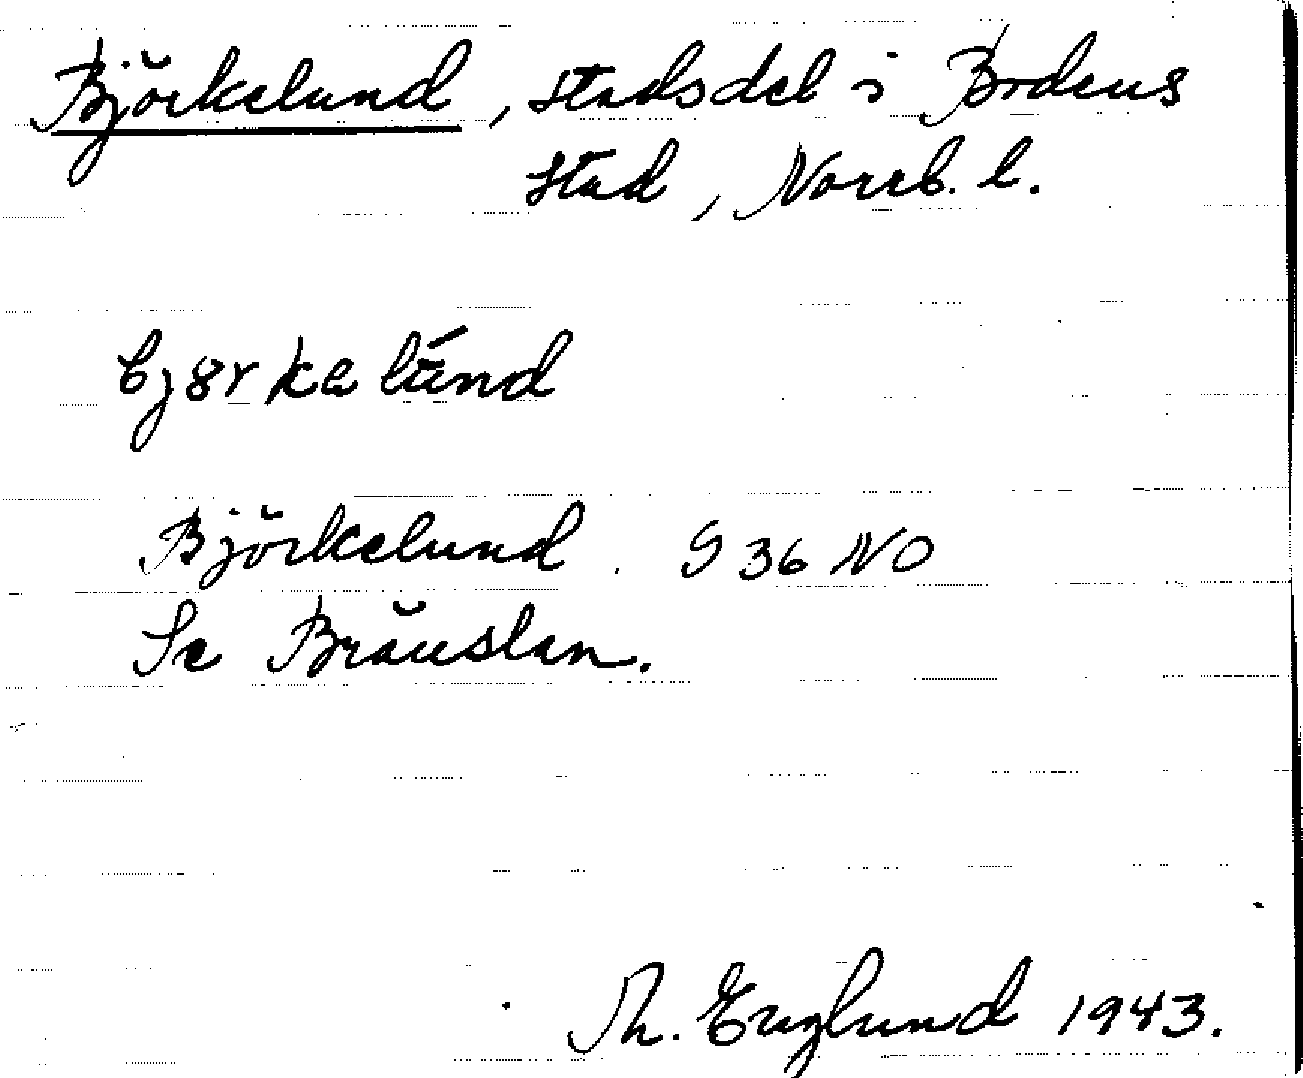 Björkelund, stadsdel i Bodens
stad, Norrb. l.
björkelúnd
Björkelund. S 36 NO
Se Bränslan.
Th. Englund 1943.